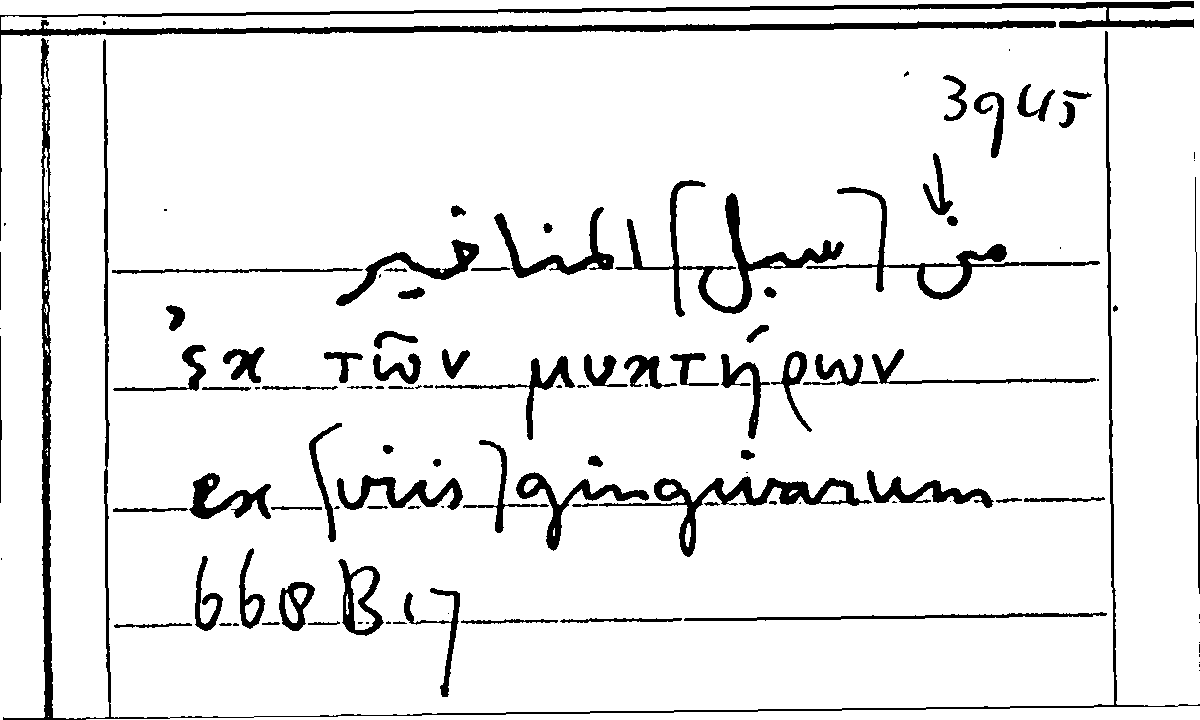 3945
↓
من [سبل] المناخير
ἐκ τῶν μυκτήρων
ex [viis] gingivarum
668 B 17